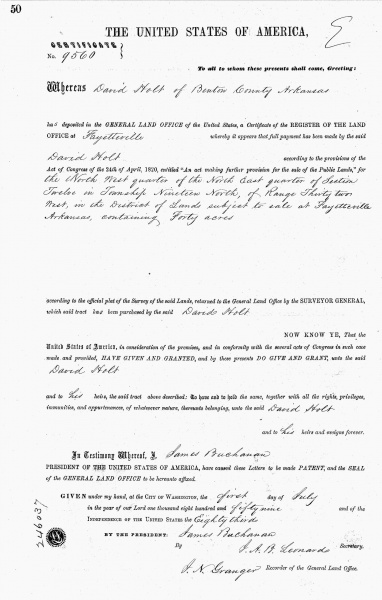 50
THE UNITED STATES OF AMERICA,
E
CERTIFICATE
No. 9560
To all to whom these presents shall come, Greeting:
Whereas David Holt of Benton County Arkansas
has deposited in the GENERAL LAND OFFICE of the United States, a Certificate of the REGISTER OF THE LAND
OFFICE at Fayetteville whereby it appears that full payment has been made by the said
David Holt according to the provisions of the
Act of Congress of the 24th of April, 1820, entitled "An act making further provision for the sale of the Public Lands," for
the North West quarter of the North East quarter of Section
Twelve in Township Nineteen North, of Range Thirty two
West, in the District of Lands subject to sale at Fayetteville
Arkansas, containing Forty acres
according to the official plat of the Survey of the said Lands, returned to the General Land Office by the SURVEYOR GENERAL,
which said tract has been purchased by the said David Holt
NOW KNOW YE, That the
United States of America, in consideration of the premises, and in conformity with the several acts of Congress in such case
made and provided, HAVE GIVEN AND GRANTED, and by these presents DO GIVE AND GRANT, unto the said
David Holt
and to his heirs, the said tract above described: To have and to hold the same, together with all the rights, privileges,
immunities, and appurtenances, of whatsoever nature, thereunto belonging, unto the said David Holt
and to his heirs and assigns forever.
In Testimony Whereof, I, James Buchanan
PRESIDENT OF THE UNITED STATES OF AMERICA, have caused these Letters to be made PATENT, and the SEAL
of the GENERAL LAND OFFICE to be hereunto affixed.
GIVEN under my hand, at the CITY OF WASHINGTON, the first day of July
in the year of our Lord one thousand eight hundred and fifty nine and of the
INDEPENDENCE OF THE UNITED STATES the Eighty third
BY THE PRESIDENT: James Buchanan
By J. A. B. Leonard Secretary.
J. N. Granger Recorder of the General Land Office.
246037